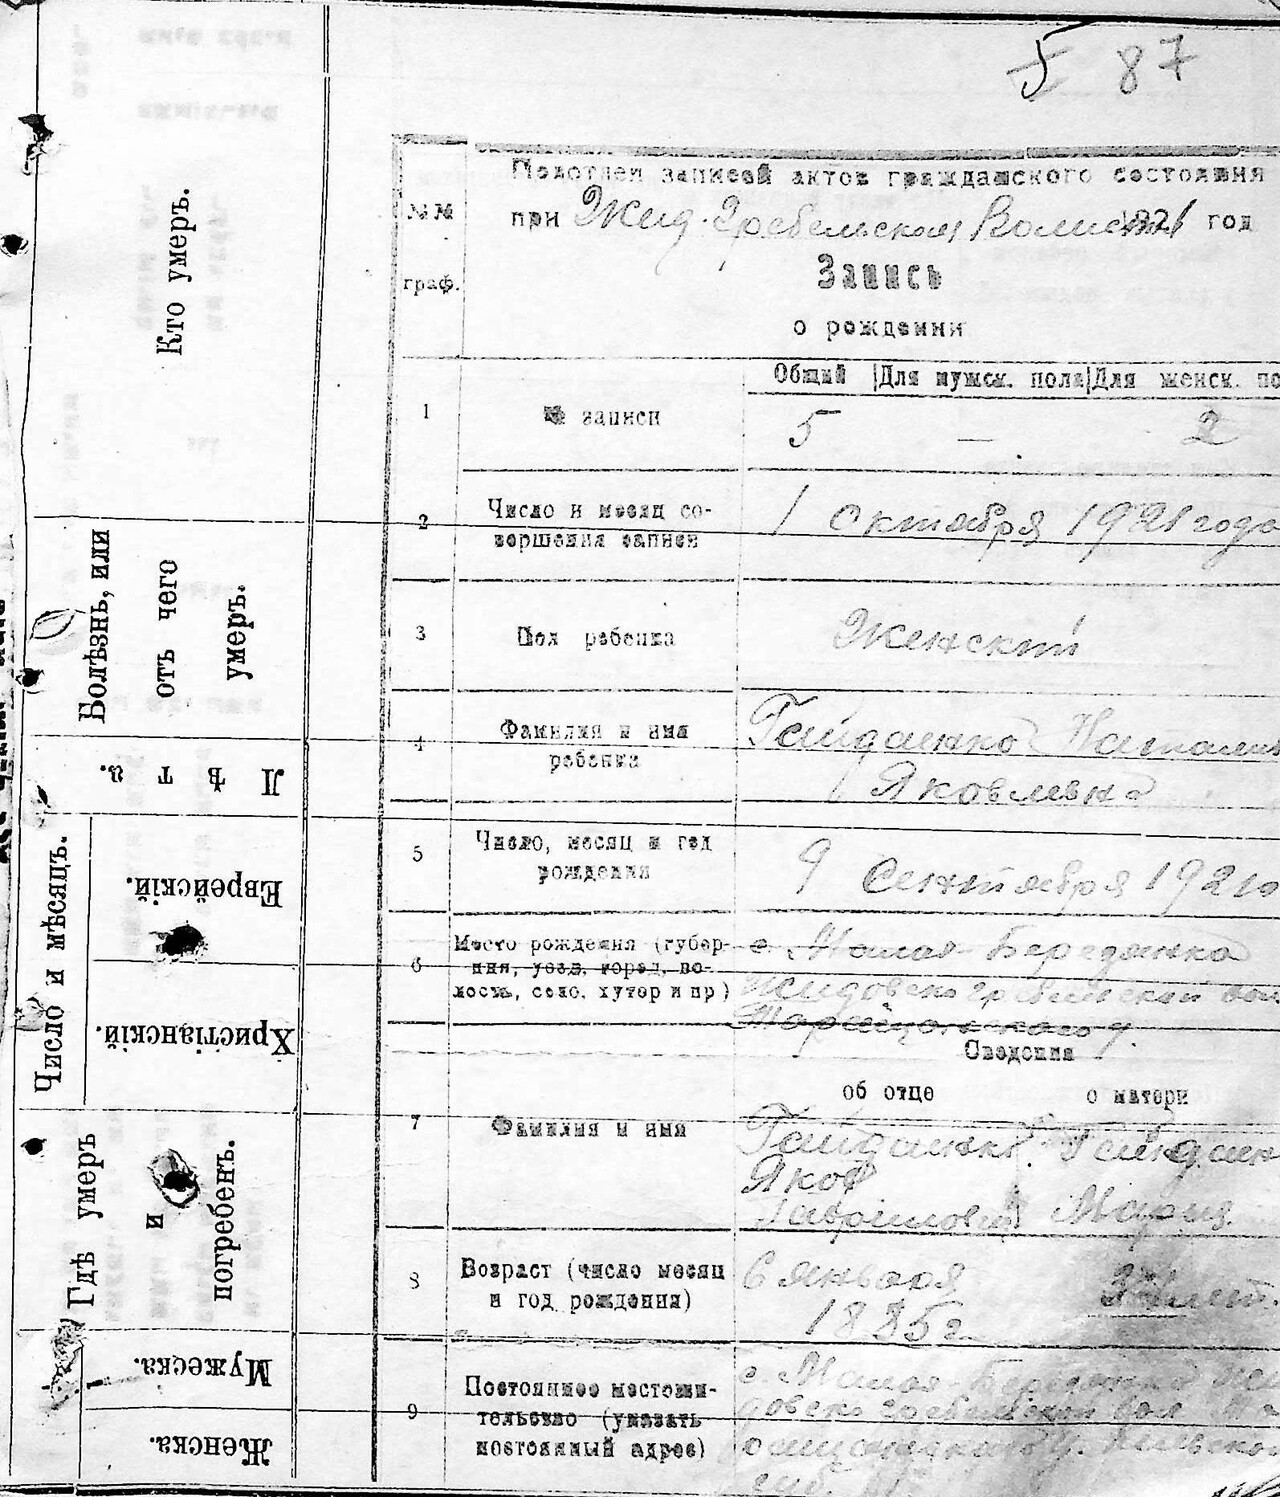 5 87
Подотдел записей актов гражданского состояния
№№
при Жид-Гребельской Волисп. 1921 год
граф.
Запись
о рождении
Общий Для мужск. пола Для женск. по
1 № записи 5 — 2
2 Число и месяц со-
вершения записи
1 октября 1921 года
3 Пол ребенка Женский
4 Фамилия и имя
ребенка
Гайдаенко Наталия
Яковлевна
5 Число, месяц и год
рождения
9 Сентября 1921
6 Место рождения (губер-
ния, уезд, город, во-
лость, село, хутор и пр)
с. Малая-Березянка
Жидовско гребельской вол
Таращанского у.
Сведения
об отце о матери
7 Фамилия и имя
Гайдаенко Гайдаен
Яков
Гаврилович Мария
8 Возраст (число месяц
и год рождения)
6 января
1885 г.
лет.
9 Постоянное местожи-
тельство (указать
постоянный адрес)
с. Малая-Березянка Жи
довско гребельской вол Та
ращанского у. Киевской
губ.
Кто умеръ.
Болѣзнь, или
отъ чего
умеръ.
Лѣта.
Число и мѣсяцъ.
Еврейскій.
Христіанскій.
Гдѣ умеръ
и
погребенъ.
Мужеска.
Женска.